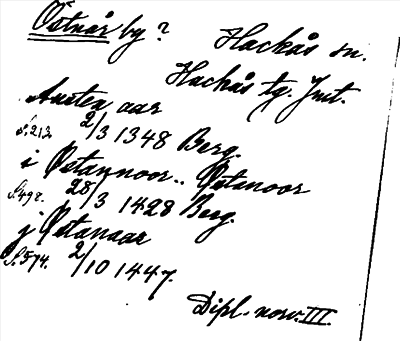 Östnår by? Hackås sn.
Hackås tg. Jmt.
Austen aar
S. 213. 2/3 1348 Berg.
i Østannoor.. Østanoor
S. 498. 28/3 1428 Berg.
j Østanaar
S. 574. 2/10 1447.
Dipl. norv. III.